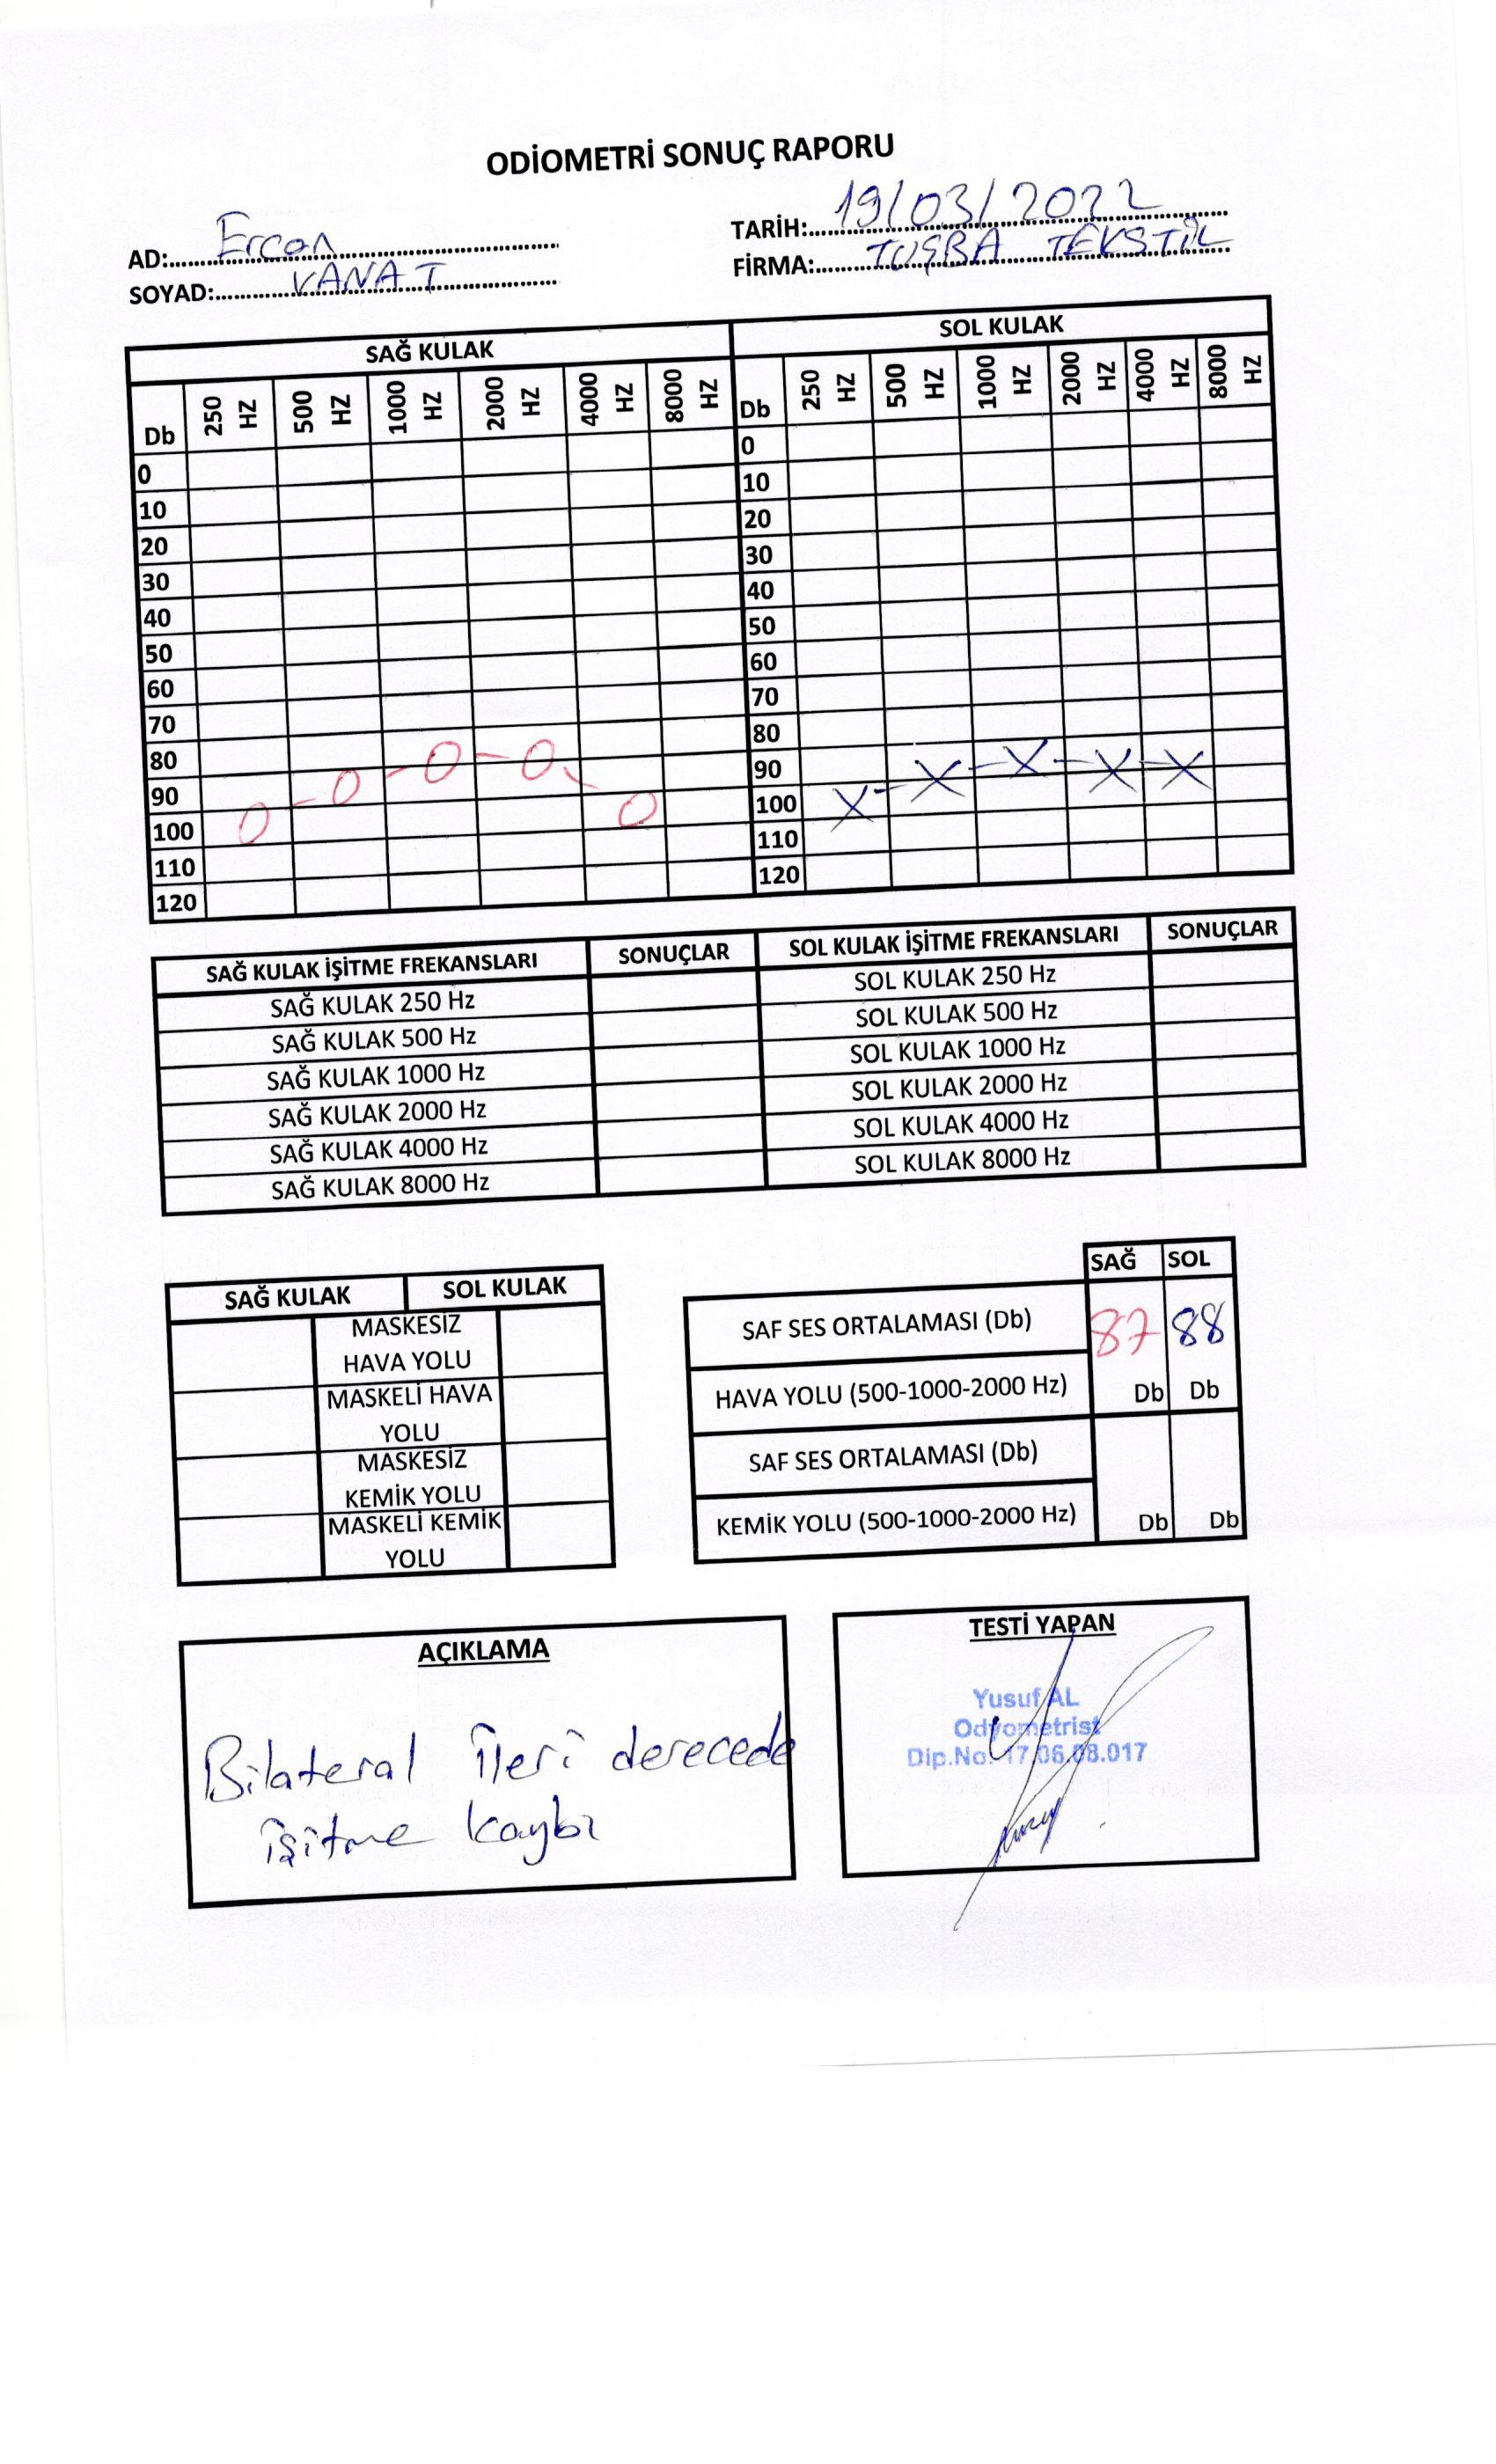 ODİOMETRİ SONUÇ RAPORU
AD: Ercan
TARİH: 19/03/2022
SOYAD: VANAT
FİRMA: TUŞBA TEKSTİL
SAĞ KULAK SOL KULAK
Db 250 HZ 500 HZ 1000 HZ 2000 HZ 4000 HZ 8000 HZ Db 250 HZ 500 HZ 1000 HZ 2000 HZ 4000 HZ 8000 HZ
0 0
10 10
20 20
30 30
40 40
50 50
60 60
70 70
80 80
90 90
100 100
110 110
120 120
SAĞ KULAK İŞİTME FREKANSLARI SONUÇLAR SOL KULAK İŞİTME FREKANSLARI SONUÇLAR
SAĞ KULAK 250 Hz SOL KULAK 250 Hz
SAĞ KULAK 500 Hz SOL KULAK 500 Hz
SAĞ KULAK 1000 Hz SOL KULAK 1000 Hz
SAĞ KULAK 2000 Hz SOL KULAK 2000 Hz
SAĞ KULAK 4000 Hz SOL KULAK 4000 Hz
SAĞ KULAK 8000 Hz SOL KULAK 8000 Hz
SAĞ KULAK SOL KULAK
MASKESİZ
HAVA YOLU
MASKELİ HAVA
YOLU
MASKESİZ
KEMİK YOLU
MASKELİ KEMİK
YOLU
SAĞ SOL
SAF SES ORTALAMASI (Db) 87 88
HAVA YOLU (500-1000-2000 Hz) Db Db
SAF SES ORTALAMASI (Db)
KEMİK YOLU (500-1000-2000 Hz) Db Db
AÇIKLAMA
Bilateral ileri derecede
işitme kaybı
TESTİ YAPAN
Yusuf AL
Odyometrist
Dip.No: 17.06.08.017